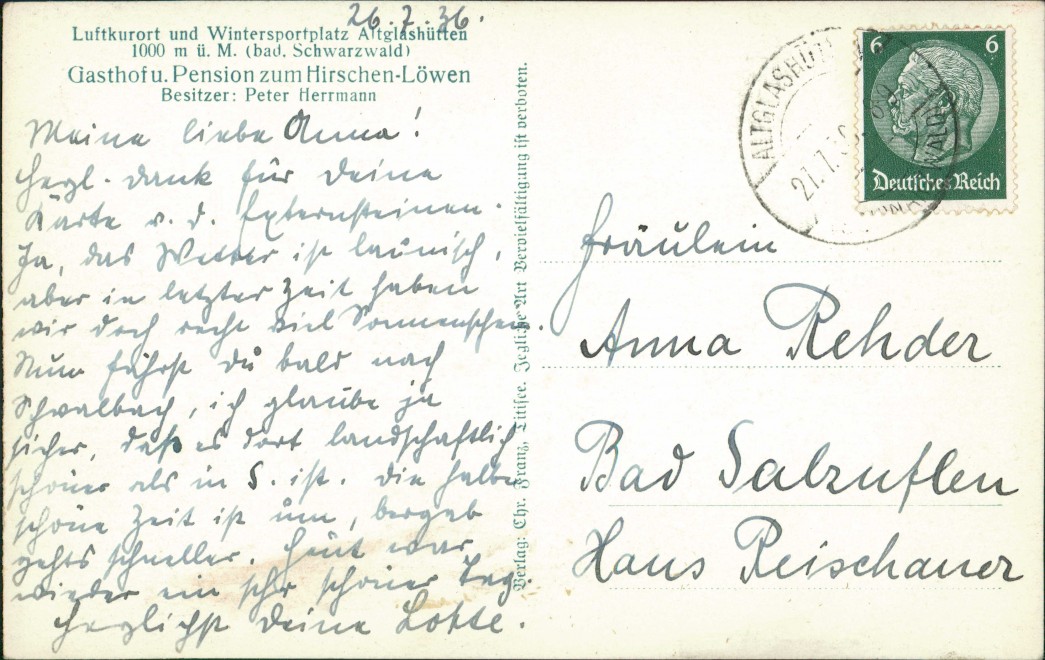 26.7.36.
Luftkurort und Wintersportplatz Altglashütten
1000 m ü. M. (bad. Schwarzwald)
Gasthof u. Pension zum Hirschen-Löwen
Besitzer: Peter Herrmann
Meine liebe Anna!
Herzl. Dank für Deine
Karte v. d. Externsteinen.
Ja, das Wetter ist launisch,
aber in letzter Zeit haben
wir doch recht viel Sonnenschein.
Nun fährst Du bald nach
Schwalbach, ich glaube ja
sicher, daß es dort landschaftlich
schöner als in S. ist. Die halbe
schöne Zeit ist um, bergab
gehts schneller. Heut war
wieder ein sehr schöner Tag.
Herzlichst Deine Lotte.
Verlag: Chr. Franz, Titisee. Jegliche Art Vervielfältigung ist verboten.
ALTGLASHÜTT
27.7.36
WALD
6 6
Deutsches Reich
Fräulein
Anna Rehder
Bad Salzuflen
Haus Reischauer